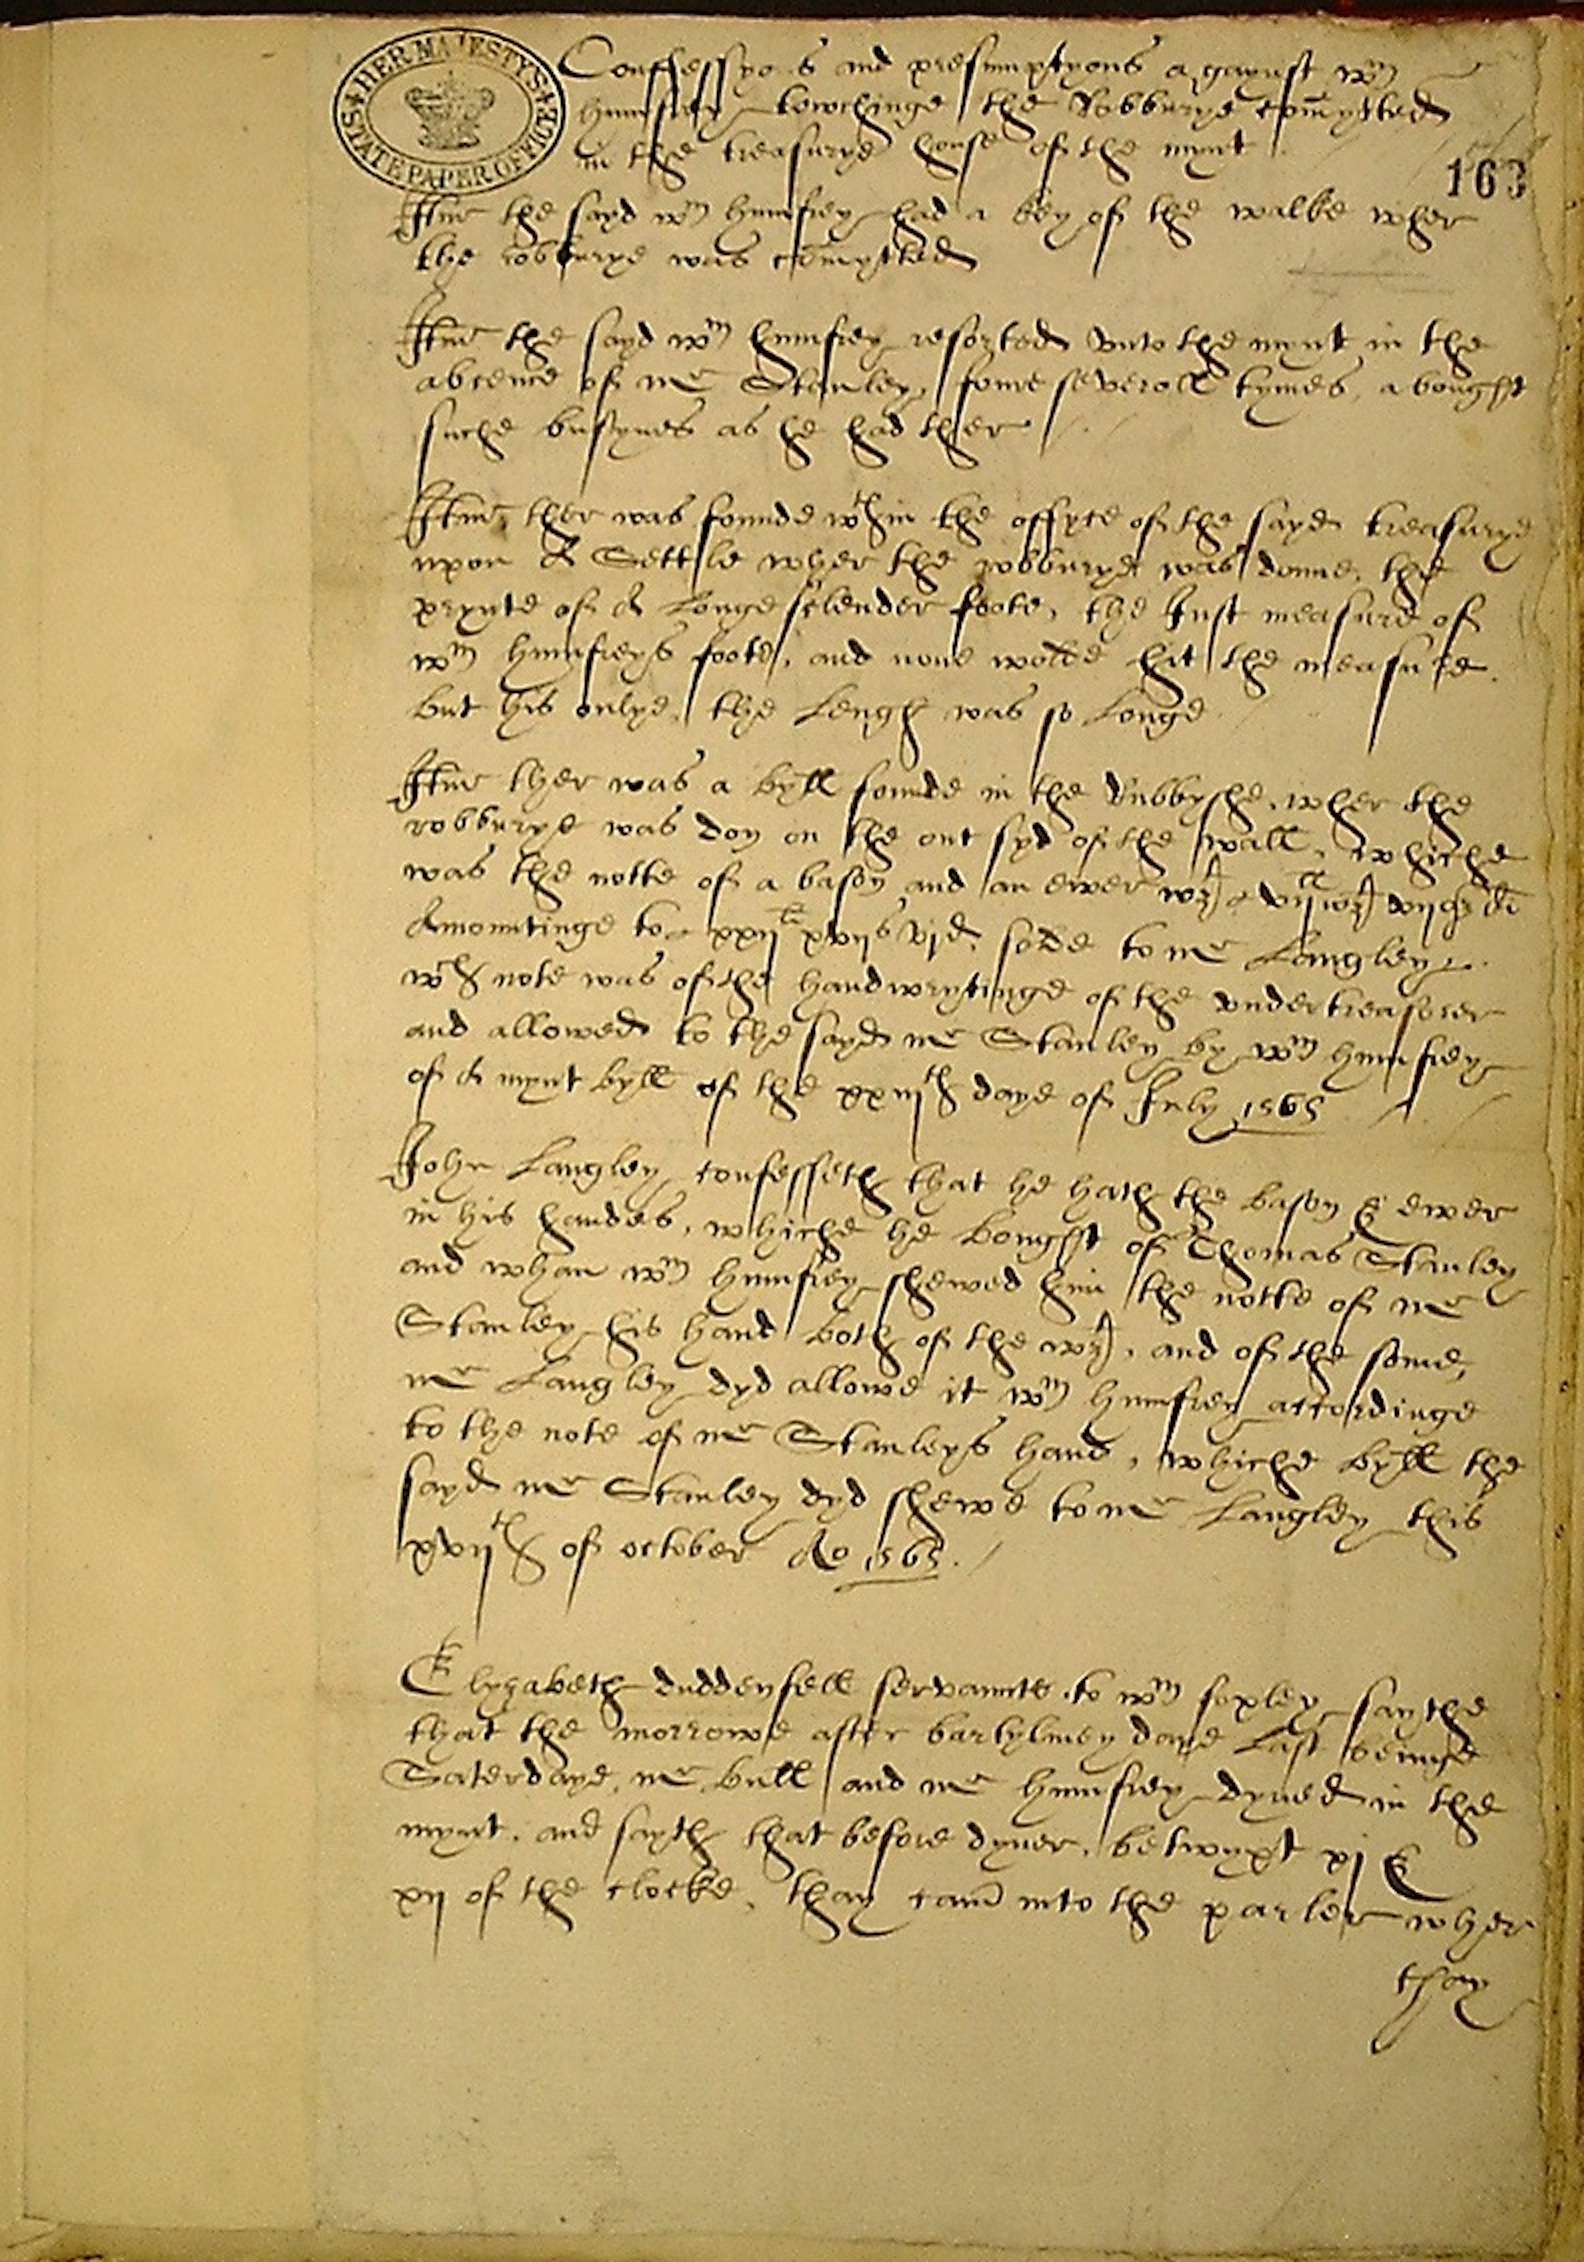 HER MAJESTYS STATE PAPER OFFICE
Confessyons and presumptyons agaynst Wm
humfrey towchinge the Robburye comytted
in the treasurye house of the mynt
163
Itm the sayd Wm humfrey had a key of the walke wher
the robburye was comytted
Itm the sayd Wm humfrey resorted unto the mynt in the
abcence of mr Stanley, some severall tymes, abought
suche busynes as he had ther
Itm ther was founde wthin the offyce of the sayd treasurye
upon A Settle wher the robburye was donne, the
prynte of A Longe sclender foote, the Just measure of
Wm humfreys foote, and none wolde hit the measure
but his onlye, the Lengh was so Longe
Itm ther was a byll founde in the Rubbyshe, wher the
robburye was don on the out syd of the wall, whiche
was the notte of a bason and an ewer
Amountinge to xxijli xvijs vjd, solde to mr Langley
wch note was of the handwrytinge of the undertreasorer
and allowed to the sayd mr Stanley by Wm humfrey
of A mynt byll of the xxiijth daye of July 1565
John Langley confesseth that he hath the bason & ewer
in his handes, whiche he bought of Thomas Stanley
and whan Wm humfrey shewed him the notte of mr
Stanley his hand both of the wt, and of the some,
mr Langley dyd allowe it Wm humfrey accordinge
to the note of mr Stanleys hand, whiche byll the
sayd mr Stanley dyd shewe to mr Langley this
xvijth of october Ao 1565
Elyzabeth duddensell servannte to Wm foxley saythe
that the morrowe after bartylmey daye Last beinge
Saterdaye, mr bull and mr humfrey dyned in the
mynt, and sayth that before dyner, betwyxt xj &
xij of the clocke, thay cam into the parler wher
thay